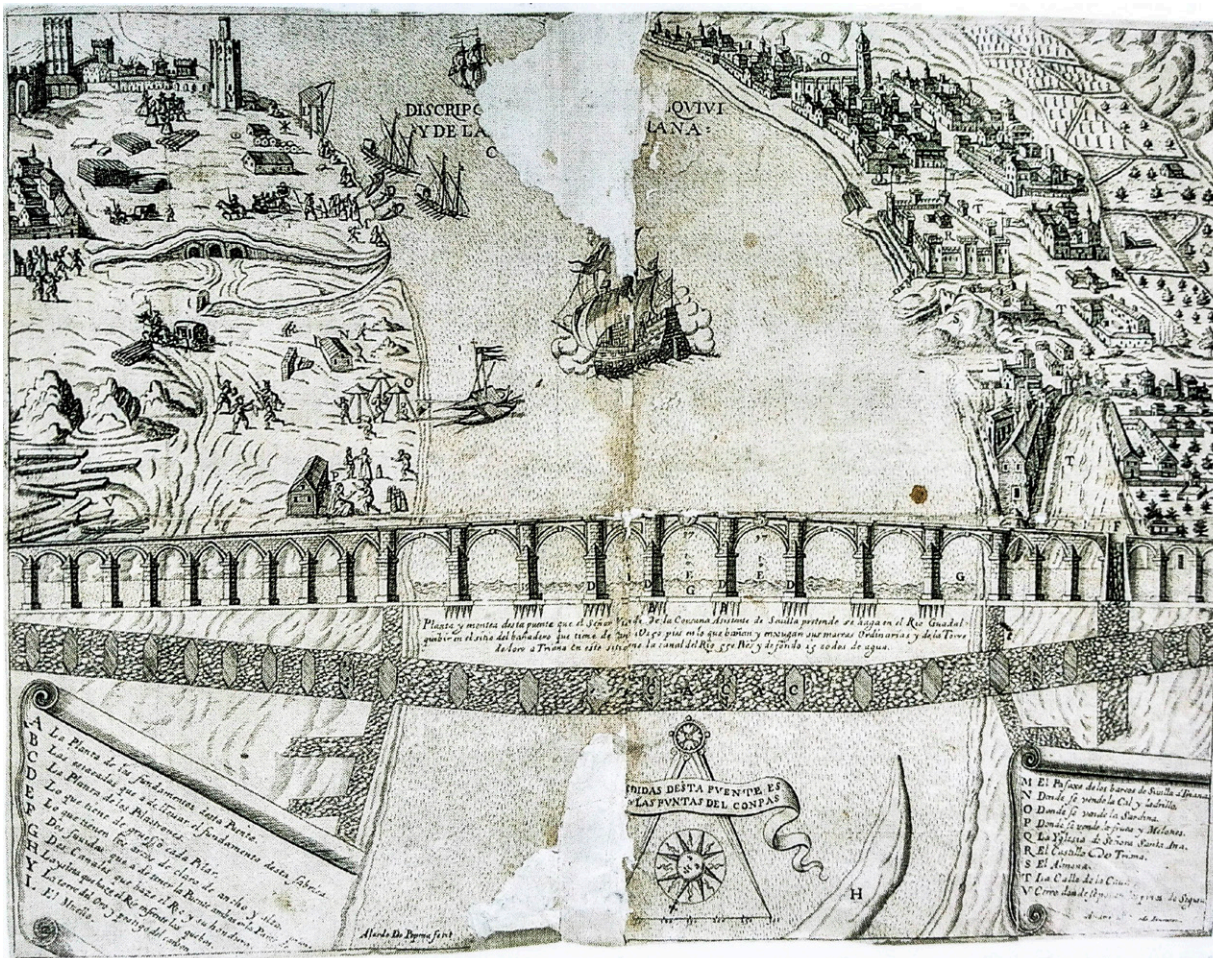 DISCRIPC QVIVI
Y DE LA IANA:
C
Planta y montea desta puente que el Señor de la Corsana Asistente de Sevilla pretende se haga en el Rio Guadal
quibir en el sitio del bañadero que tiene de pies en lo que bañan y enxugan sus mareas Ordinarias y de la Torre
de loro a Triana en este la canal del Rio 550 Pies y de fondo 15 codos de agua.
A La Planta de los fundamentos desta Puente.
B Las estacadas que a de lleuar el fundamento desta fabrica.
C La Planta de los Pilastrones.
D Lo que tiene de grueso cada Pilar.
E Lo que tienen los arcos de claro de ancho y alto.
F Dos suuidas que a de tener la Puente ambas en la Parte
G Dos Canales que haze el Rio y su hondura.
H La ysleta que haze el Rio enfrente los
Y La torre del Oro y
L El Muelle.
EDIDAS DESTA PVENTE ES
LAS PVNTAS DEL CONPAS
H
Alardo De Popma fecit
M El Pasaxe de los barcos de Sevilla a Triana.
N Donde se vende la Cal y Ladrillo.
O Donde se vende la Sardina.
P Donde se vende la fruta y Melones.
Q La Yglesia de Señora Santa Ana.
R El Castillo de Triana.
S El Almona.
T La Calle de la Caua.
V Cerro donde se